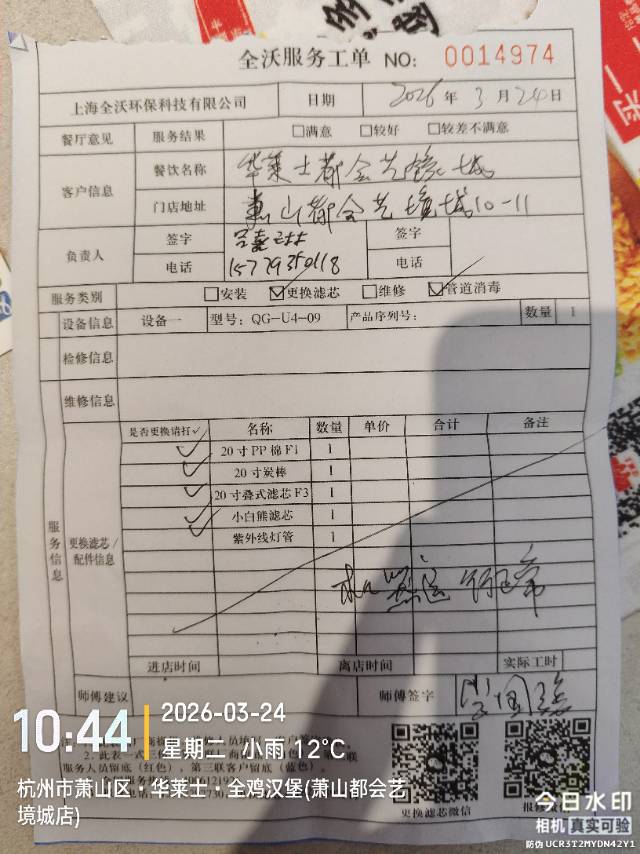 全沃服务工单 NO: 0014974
上海全沃环保科技有限公司 日期 2026年3月24日
餐厅意见 服务结果 □满意 □较好 □较差不满意
客户信息 餐饮名称 华莱士都会艺境城
门店地址 萧山都会艺境城10-11
负责人 签字 签字
电话 15779350118 电话
服务类别 □安装 ☑更换滤芯 □维修 ☑管道消毒
设备信息 设备一 型号: QG-U4-09 产品序列号: 数量 1
检修信息
维修信息
服务信息
更换滤芯/配件信息
是否更换请打✓ 名称 数量 单价 合计 备注
✓ 20寸PP棉F1 1
✓ 20寸炭棒 1
✓ 20寸叠式滤芯F3 1
✓ 小白熊滤芯 1
紫外线灯管 1
进店时间 离店时间 实际工时
师傅建议 师傅签字
2. 此表一式三
服务人员留底(红色), 第三联客户留底(蓝色).
更换滤芯微信
10:44
2026-03-24
星期二 小雨 12℃
杭州市萧山区·华莱士·全鸡汉堡(萧山都会艺
境城店)
今日水印
相机 真实可验
防伪 UCR3T2MYDN42Y1